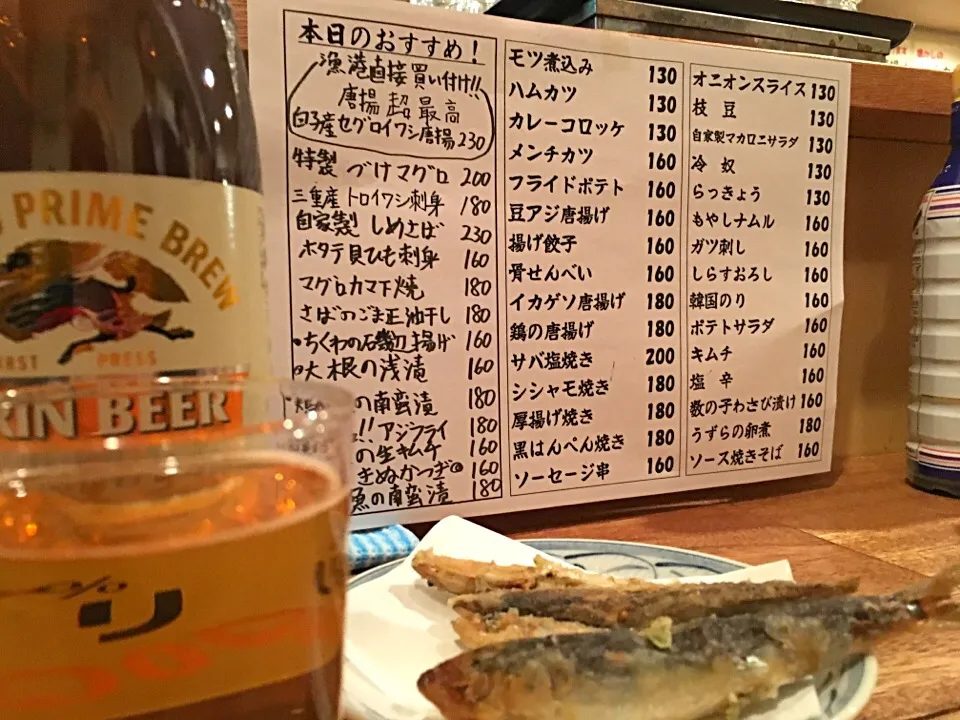 本日のおすすめ!
漁港直接買い付け!!
唐揚 超 最高
セグロイワシ唐揚 230
特製 づけマグロ 200
三重産 トロイワシ刺身 180
自家製 しめさば 230
ホタテ貝ひも刺身 160
マグロカマ下焼 180
さばのごま正油干し 180
ちくわの石磯辺揚げ 160
大根の浅漬 160
の南蛮漬 180
!! アジフライ 180
の生キムチ 160
きぬかつぎ 160
魚の南蛮漬 180
モツ煮込み 130
ハムカツ 130
カレーコロッケ 130
メンチカツ 160
フライドポテト 160
豆アジ唐揚げ 160
揚げ餃子 160
骨せんべい 160
イカゲソ唐揚げ 180
鶏の唐揚げ 180
サバ塩焼き 200
シシャモ焼き 180
厚揚げ焼き 180
黒はんぺん焼き 180
ソーセージ串 160
オニオンスライス 130
枝豆 130
自家製マカロニサラダ 130
冷奴 130
らっきょう 130
もやしナムル 160
ガツ刺し 160
しらすおろし 160
韓国のり 160
ポテトサラダ 160
キムチ 160
塩辛 160
数の子わさび漬け 160
うずらの卵煮 180
ソース焼きそば 160
PRIME BREW
FIRST PRESS
KIRIN BEER
り